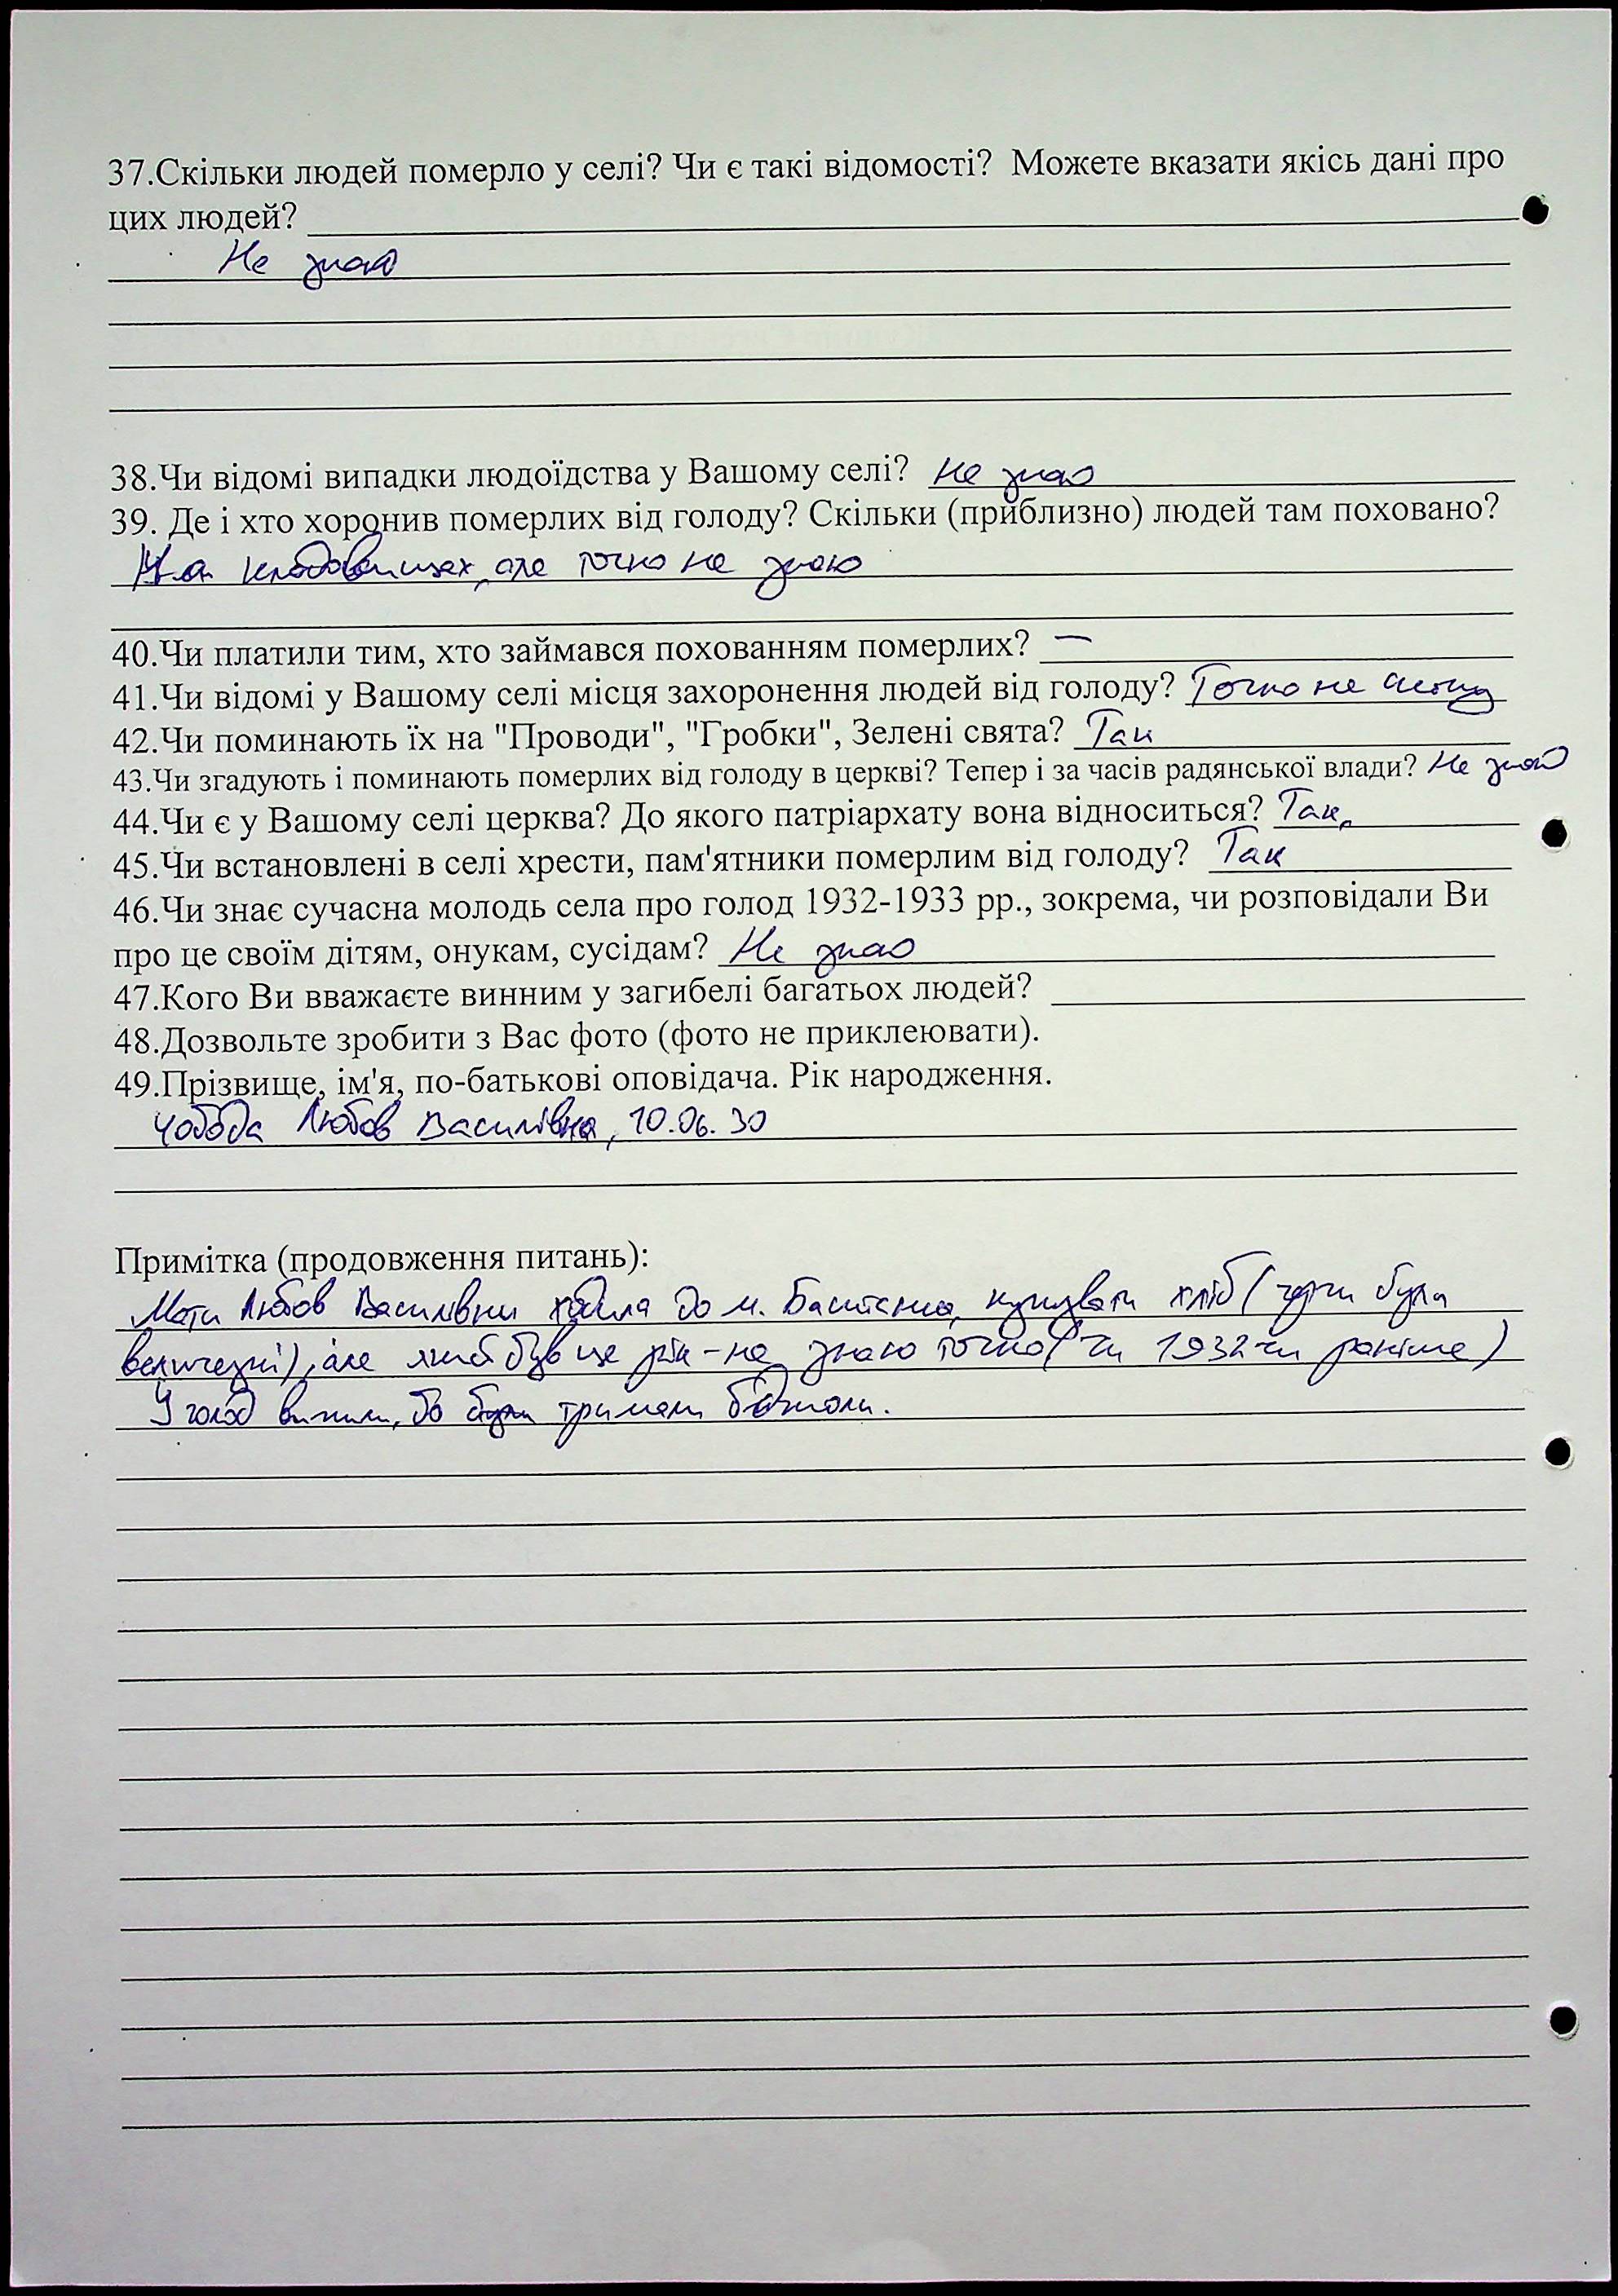 37.Скільки людей померло у селі? Чи є такі відомості? Можете вказати якісь дані про
цих людей?
Не знаю
38.Чи відомі випадки людоїдства у Вашому селі? Не знаю
39. Де і хто хоронив померлих від голоду? Скільки (приблизно) людей там поховано?
На кладовищах, але точно не знаю
40.Чи платили тим, хто займався похованням померлих? —
41.Чи відомі у Вашому селі місця захоронення людей від голоду? Точно не
42.Чи поминають їх на "Проводи", "Гробки", Зелені свята? Так
43.Чи згадують і поминають померлих від голоду в церкві? Тепер і за часів радянської влади? Не знаю
44.Чи є у Вашому селі церква? До якого патріархату вона відноситься? Так,
45.Чи встановлені в селі хрести, пам'ятники померлим від голоду? Так
46.Чи знає сучасна молодь села про голод 1932-1933 рр., зокрема, чи розповідали Ви
про це своїм дітям, онукам, сусідам? Не знаю
47.Кого Ви вважаєте винним у загибелі багатьох людей?
48.Дозвольте зробити з Вас фото (фото не приклеювати).
49.Прізвище, ім'я, по-батькові оповідача. Рік народження.
Любов Василівна, 10.06.30
Примітка (продовження питань):
Мати Любов Василівни ходила до м. купувати хліб (черги були
величезні), але який був це рік - не знаю точно (чи 1932 чи раніше)
У голод вижили, бо тримали бджоли.